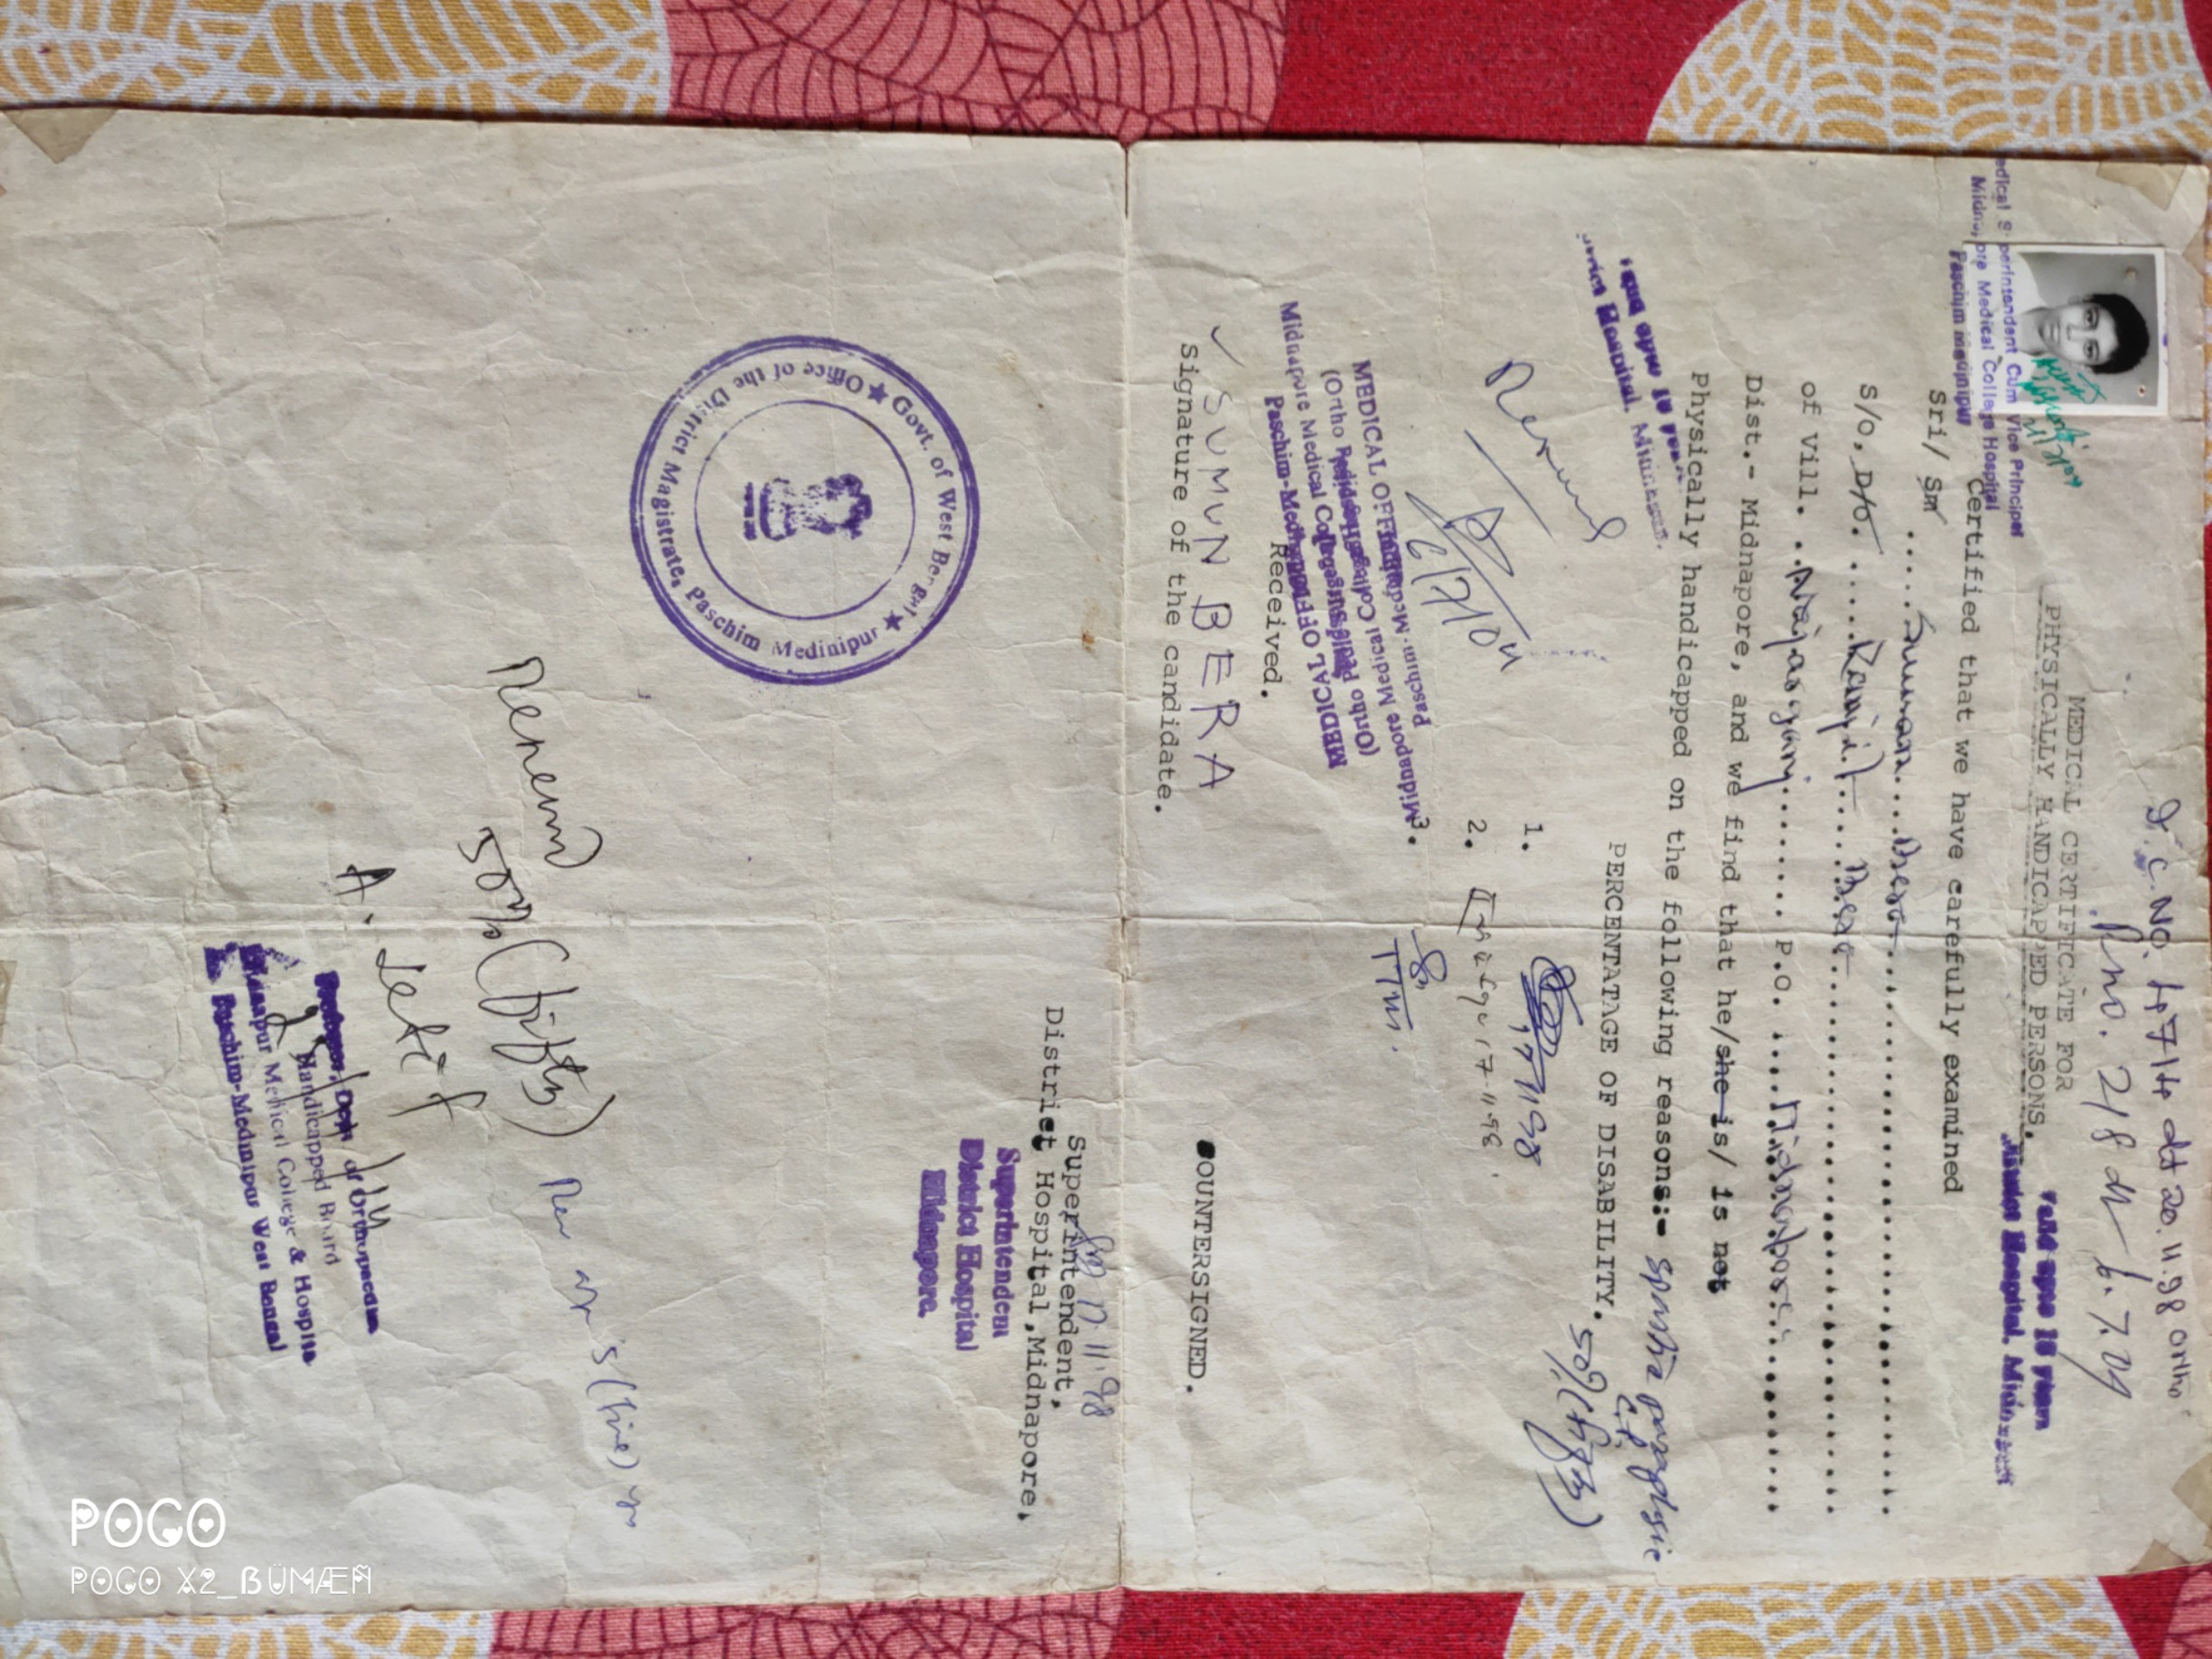 D.C.No. 4714 dt 20.11.98 Ortho
Rno. 218 dt 6.7.04
MEDICAL CERTIFICATE FOR
PHYSICALLY HANDICAPPED PERSONS.
Medical Superintendent Cum Vice Principal
Midnapore Medical College Hospital
Paschim Medinipur
District Hospital, Midnapore
Certified that we have carefully examined
Sri/ Sm ..... Suman .... Bera
S/o, D/o. ..... Ranjit .... Bera
of vill. .. P.O. .... Midnapore
Dist.- Midnapore, and we find that he/she is/ is not
Physically handicapped on the following reasons:- spastic paraplegia
C.P.
PERCENTATAGE OF DISABILITY. 50% (fifty)
District Hospital, Midnapore.
1.
17/11/98
2.
17.11.98
3.
Renewed
6/7/04
MEDICAL OFFICER
(Ortho
Midnapore Medical College
Paschim-Medinipur
MEDICAL OFFICER
(Ortho
Midnapore Medical College
Paschim-Medinipur
Received.
✓ SUMUN BERA
Signature of the candidate.
COUNTERSIGNED.
17.11.98
Superintendent,
District Hospital, Midnapore.
Superintendent
District Hospital
Midnapore.
★ Govt. of West Bengal ★
Office of the District Magistrate, Paschim Medinipur
Renewed
50% (fifty)
5 (five) yrs
A. Latif
Professor, Dept. of Orthopaedics
Handicapped Board
Midnapur Medical College & Hospital
Paschim-Medinipur West Bengal
POCO
POCO X2_BÜMÆÑ